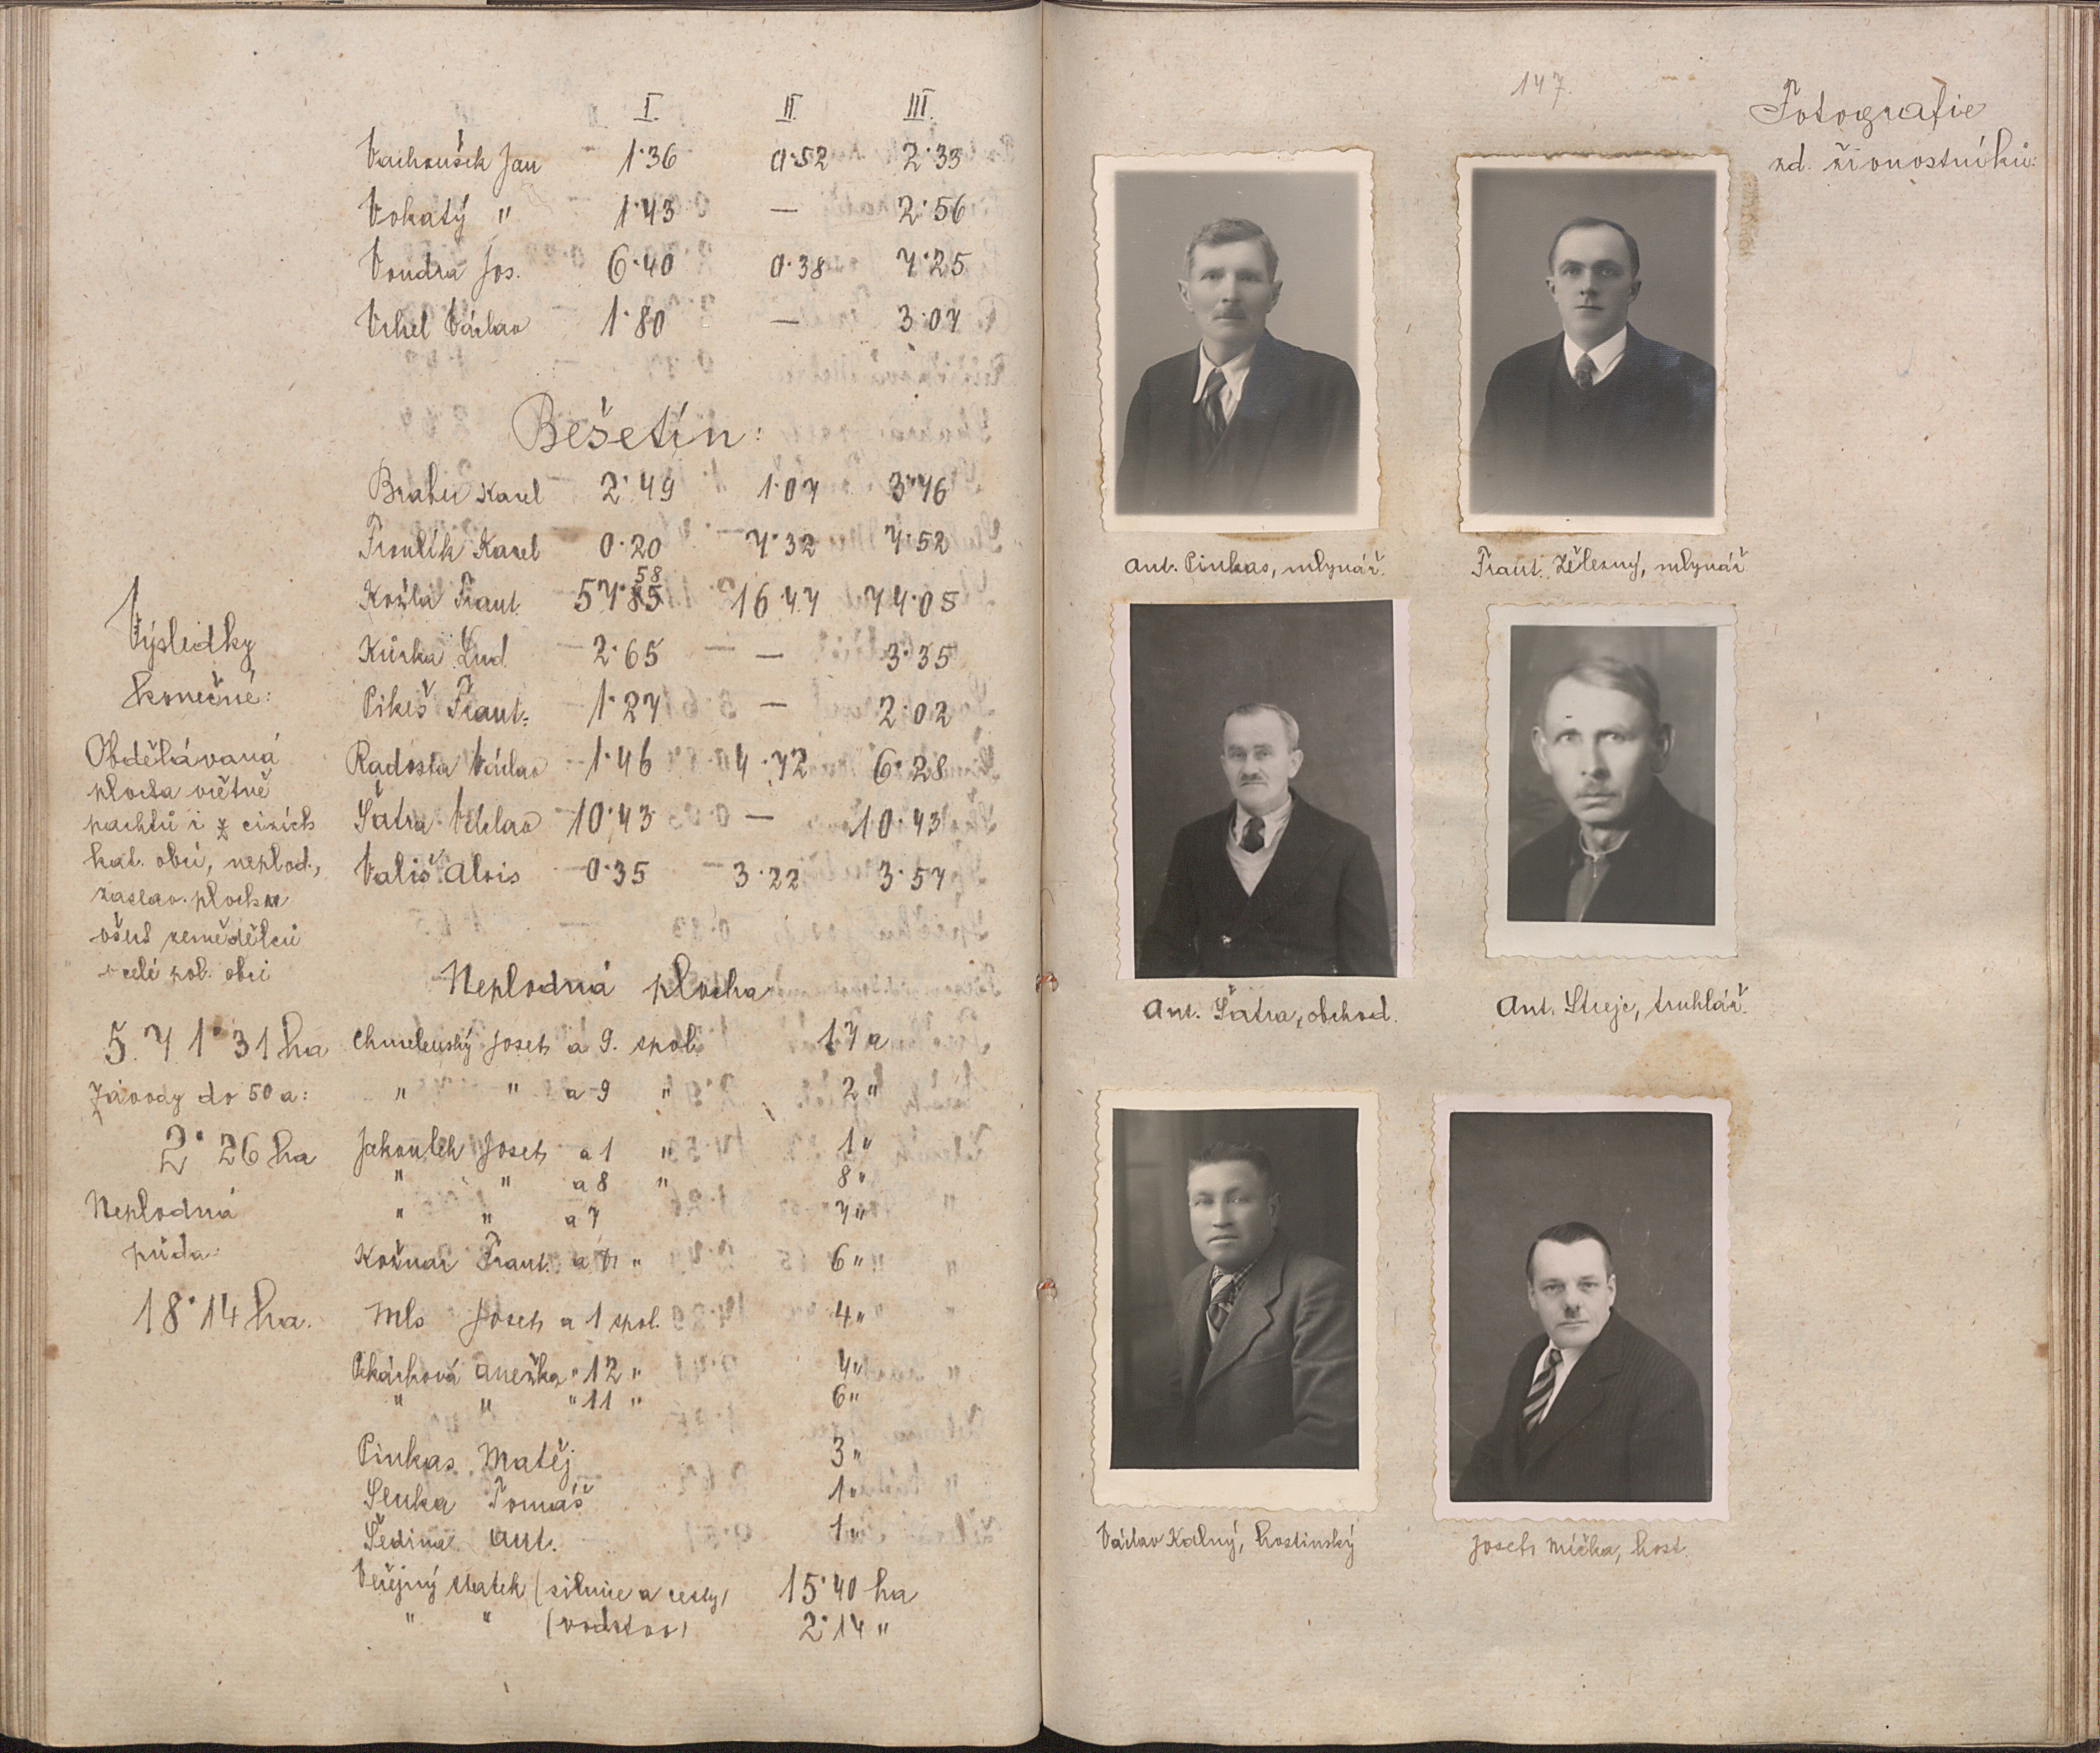 I. II. III.
Vachoušek Jan 1·36 0·52 2·33
Vokatý " 1·43 — 2·56
Vondra Jos. 6·40 0·38 7·25
Vrhel Václav 1·80 — 3·07
Bešetín:
Karel 2·49 1·07 3·76
Froulík Karel 0·20 7·32 7·52
Kozla Frant. 57·58 16·47 74·05
Kůrka Lud. 2·65 — 3·35
Pikeš Frant. 1·27 — 2·02
Radosta Václav 1·46 4·72 6·28
Šatra Václav 10·43 — 10·43
Vališ Alois 0·35 3·22 3·57
Výsledky
konečné:
Obdělávaná
plocha včetně
pachtů i z cizích
kat. obcí, neplod.,
zastav. ploch u
všech zemědělců
v celé pol. obci
5.71·31 ha
Závody do 50 a:
2·26 ha
Neplodná
půda:
18·14 ha.
Neplodná plocha
Chmelenský Josef a 9. spol. 17 a
" " a 9 " 2 "
Jakoubek Josef a 1 " 1 "
" " a 8 " 8 "
" " a 7 7 "
Kožnar Frant. a " 6 "
Mls Josef a 1 spol. 4 "
Anežka " 12 " 7 "
" " " 11 " 6 "
Pinkas Matěj 3 "
Senka Tomáš 1 "
Šedina Ant. 1 "
Veřejný statek (silnice a cesty) 15·40 ha
" " (vodstvo) 2·14 "
147.
Fotografie
zd. živnostníků:
Ant. Pinkas, mlynář.
Frant. Železný, mlynář
Ant. Šatra, obchod.
Ant. Strejc, truhlář.
Václav Kalný, hostinský
Josef Mička, host.